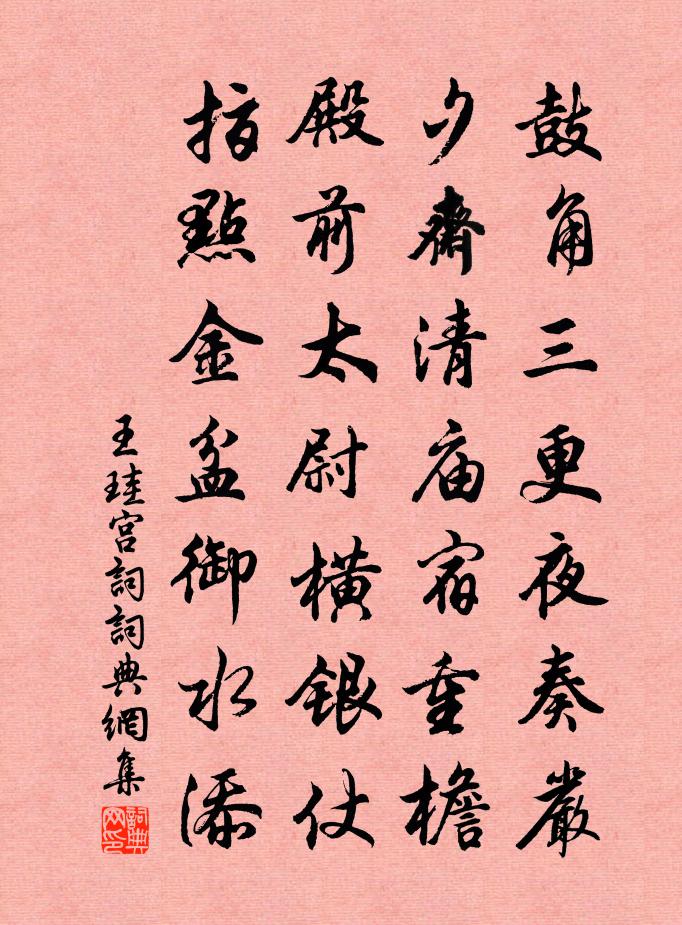 鼓角三更夜奏嚴
夕齋清庙宿重檐
殿前太尉橫銀仗
指點金盆御水添
王珪宮詞詞典網集
詞典网印